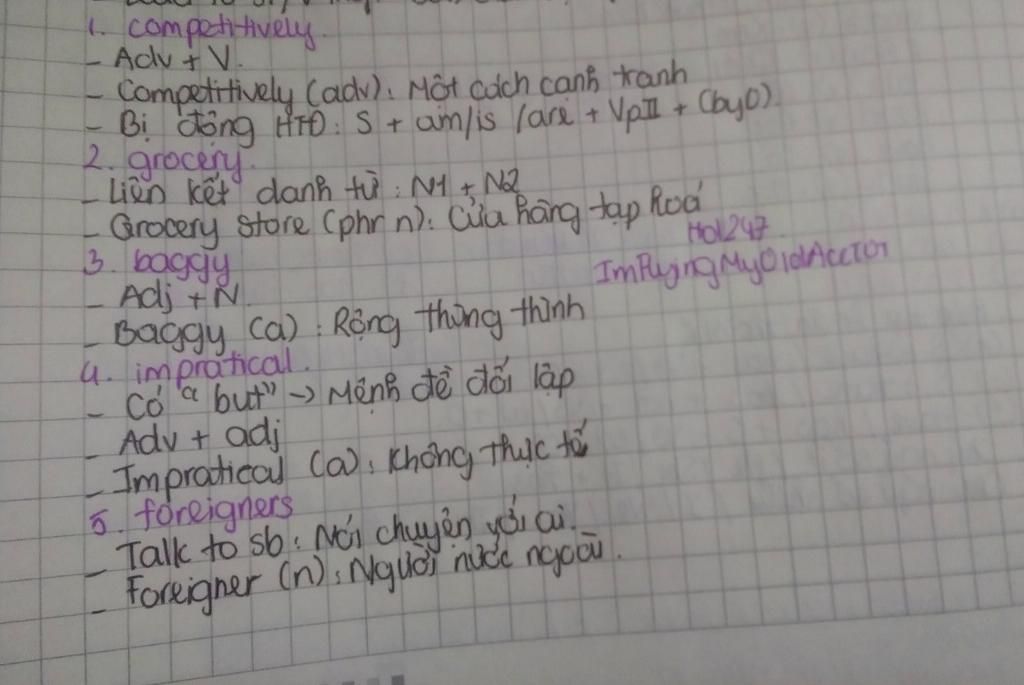 1. competitively.
- Adv + V.
- Competitively (adv): Một cách cạnh tranh
- Bị động HTĐ: S + am/is/are + VpII + (byO)
2. grocery.
- Liên kết danh từ: N1 + N2
- Grocery store (phr n): Cửa hàng tạp hoá
Hol247
3. baggy
ImPlyingMyOldAcc
- Adj + N.
- Baggy (a): Rộng thùng thình
4. impratical.
- Có "but" -> Mệnh đề đối lập
- Adv + adj
- Impratical (a): Không thực tế
5. foreigners
- Talk to sb: Nói chuyện với ai.
- Foreigner (n): Người nước ngoài.